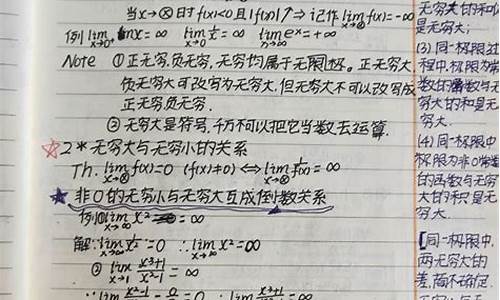 当x→⊗时f(x)<0且|f(x)|↗⇒记作 lim x→⊗ f(x)=-∞
例 lim x→0+ lnx=∞ lim x→0 1/x=∞ lim e^x=+∞
Note ①正无穷,负无穷,无穷均属于无限极。正无穷大
负无穷大可改写为无穷大,但无穷大不可以改写成
正无穷负无穷.
②无穷大是符号,千万不可以把它当数去运算.
☆2*无穷大与无穷小的关系
Th. lim x→⊗ f(x)=0 (f(x)≠0)⇔lim x→⊗ 1/f(x)=∞
★非0的无穷小与无穷大互成倒数关系
=∞
=0 ∴ lim x²=∞
② lim x→1 (x³+1)/(x²-1)=∞
=0
无穷大的和
是无穷大;
(3)同一极限过
程中,极限为常
数的函数与无
穷大的和是无
穷大.
(4)同一极限中
极限为非0常数
的函数与无穷
大的积是无
穷大.
[同一极限中,
两无穷大的
差,商不确定.